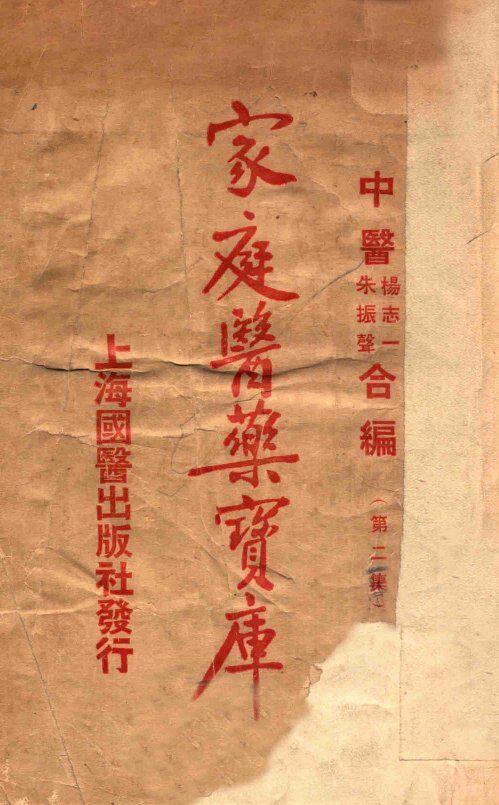 中醫楊志一朱振聲合編（第二集）
家庭醫藥寶庫
上海國醫出版社發行